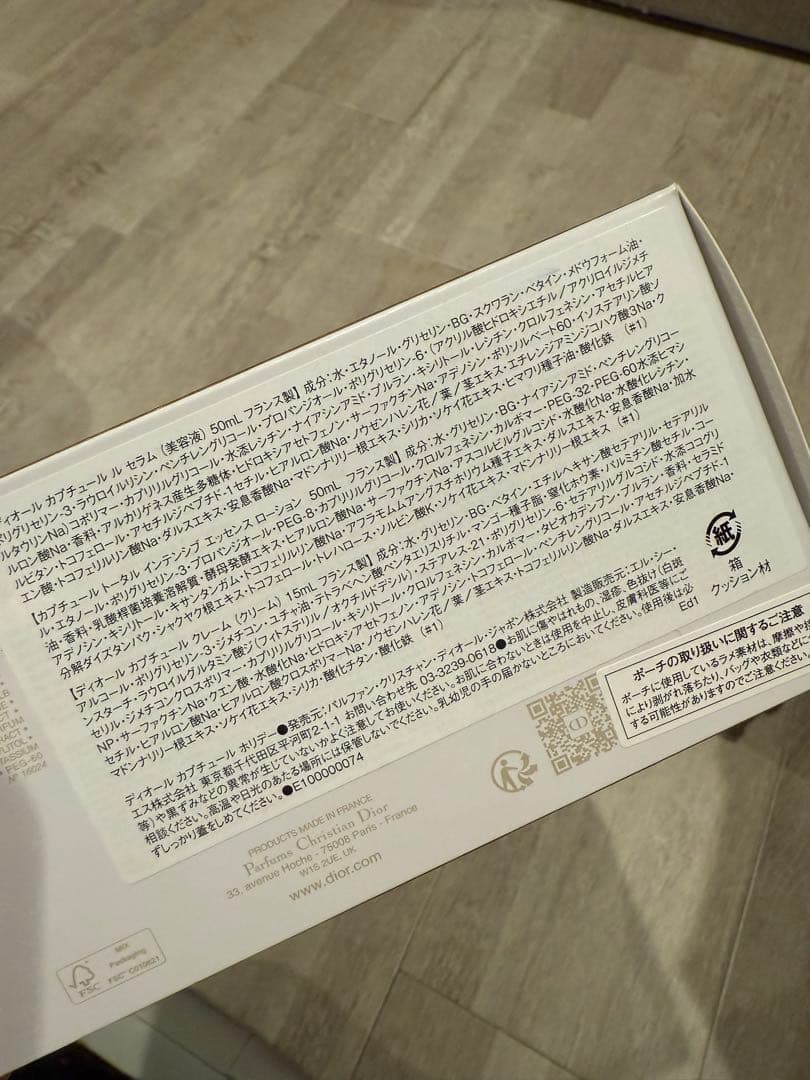 ディオール カプチュール ル セラム (美容液) 50mL フランス製】成分:水・エタノール・グリセリン・BG・スクワラン・ベタイン・メドウフォーム油・
ポリグリセリン-3・ラウロイルリシン・ペンチレングリコール・プロパンジオール・ポリグリセリン-6・(アクリル酸ヒドロキシエチル/アクリロイルジメチ
ルタウリンNa)コポリマー・カプリリルグリコール・水添レシチン・ナイアシンアミド・プルラン・キシリトール・レシチン・クロルフェネシン・アセチルヒア
ルロン酸Na・香料・アルカリゲネス産生多糖体・ヒドロキシアセトフェノン・サーファクチンNa・アデノシン・ポリソルベート60・イソステアリン酸ソ
ルビタン・トコフェロール・アセチルジペプチド-1セチル・ヒアルロン酸Na・ノウゼンハレン花/葉/茎エキス・エチレンジアミンジコハク酸3Na・ク
エン酸・トコフェリルリン酸Na・ダルスエキス・安息香酸Na・マドンナリリー根エキス・シリカ・ソケイ花エキス・ヒマワリ種子油・酸化鉄 (#1)
【カプチュール トータル インテンシブ エッセンス ローション 50mL フランス製】成分:水・グリセリン・BG・ナイアシンアミド・ペンチレングリコー
ル・エタノール・ポリグリセリン-3・プロパンジオール・PEG-8・カプリリルグリコール・クロルフェネシン・カルボマー・PEG-32・PEG-60水添ヒマシ
油・香料・乳酸桿菌培養溶解質・酵母発酵エキス・ヒアルロン酸Na・サーファクチンNa・アスコルビルグルコシド・水酸化Na・水酸化レシチン・
アデノシン・キシリトール・キサンタンガム・トコフェリルリン酸Na・アフラモムアングスチホリウム種子エキス・ダルスエキス・安息香酸Na・加水
分解ダイズタンパク・シャクヤク根エキス・トコフェロール・トレハロース・ソルビン酸K・ソケイ花エキス・マドンナリリー根エキス (#1)
【ディオール カプチュール クレーム (クリーム) 15mL フランス製】成分:水・グリセリン・BG・ベタイン・エチルヘキサン酸セテアリル・セテアリル
アルコール・ポリグリセリン-3・ジメチコン・ユチャ油・テトラヘヘン酸ペンタエリスリチル・マンゴー種子脂・窒化ホウ素・パルミチン酸セチル・コー
ンスターチ・ラウロイルグルタミン酸ジ(フィトステリル/オクチルドデシル)・ステアレス-21・ポリグリセリン-6・セテアリルグルコシド・水添ココグリ
セリル・ジメチコンクロスポリマー・カプリリルグリコール・キシリトール・クロルフェネシン・カルボマー・タピオカデンプン・プルラン・香料・セラミド
NP・サーファクチンNa・クエン酸・水酸化Na・ヒドロキシアセトフェノン・アデノシン・トコフェロール・ペンチレングリコール・アセチルジペプチド-1
セチル・ヒアルロン酸Na・ヒアルロン酸クロスポリマーNa・ノウゼンハレン花/葉/茎エキス・トコフェリルリン酸Na・ダルスエキス・安息香酸Na・
マドンナリリー根エキス・ソケイ花エキス・シリカ・酸化チタン・酸化鉄 (#1)
ディオール カプチュール ホリデー●発売元:パルファン・クリスチャン・ディオール・ジャポン株式会社 製造販売元:エル・シー・
エス株式会社 東京都千代田区平河町2-1-1 お問い合わせ先 03-3239-0618●お肌に傷やはれもの、湿疹、色抜け(白斑
等)や黒ずみなどの異常が生じていないかよく注意してお使いください。お肌に合わないときは使用を中止し、皮膚科医等にご
相談ください。高温や日光のあたる場所には保管しないでください。乳幼児の手の届かないところにおいてください。使用後は必
ずしっかり蓋をしめてください。●E100000074
Ed1
紙
箱
クッション材
ポーチの取り扱いに関するご注意
ポーチに使用しているラメ素材は、摩擦や
により剥がれ落ちたり、バッグや衣類などに
する可能性がありますのでご注意ください。
PRODUCTS MADE IN FRANCE
Parfums Christian Dior
33, avenue Hoche - 75008 Paris - France
W1S 2UE, UK
www.dior.com
CD
MIX
Packaging
FSC
FSC™ C010621
PEG-60
Nº 16024